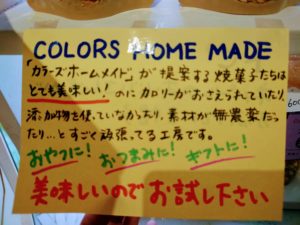 COLORS HOME MADE
「カラーズホームメイド」が提案する焼菓子たちは
とても美味しい！のにカロリーがおさえられていたり、
添加物を使っていなかったり、素材が無農薬だっ
たり…とすごく頑張ってる工房です。
おやつに！ おつまみに！ ギフトに！
美味しいのでお試し下さい